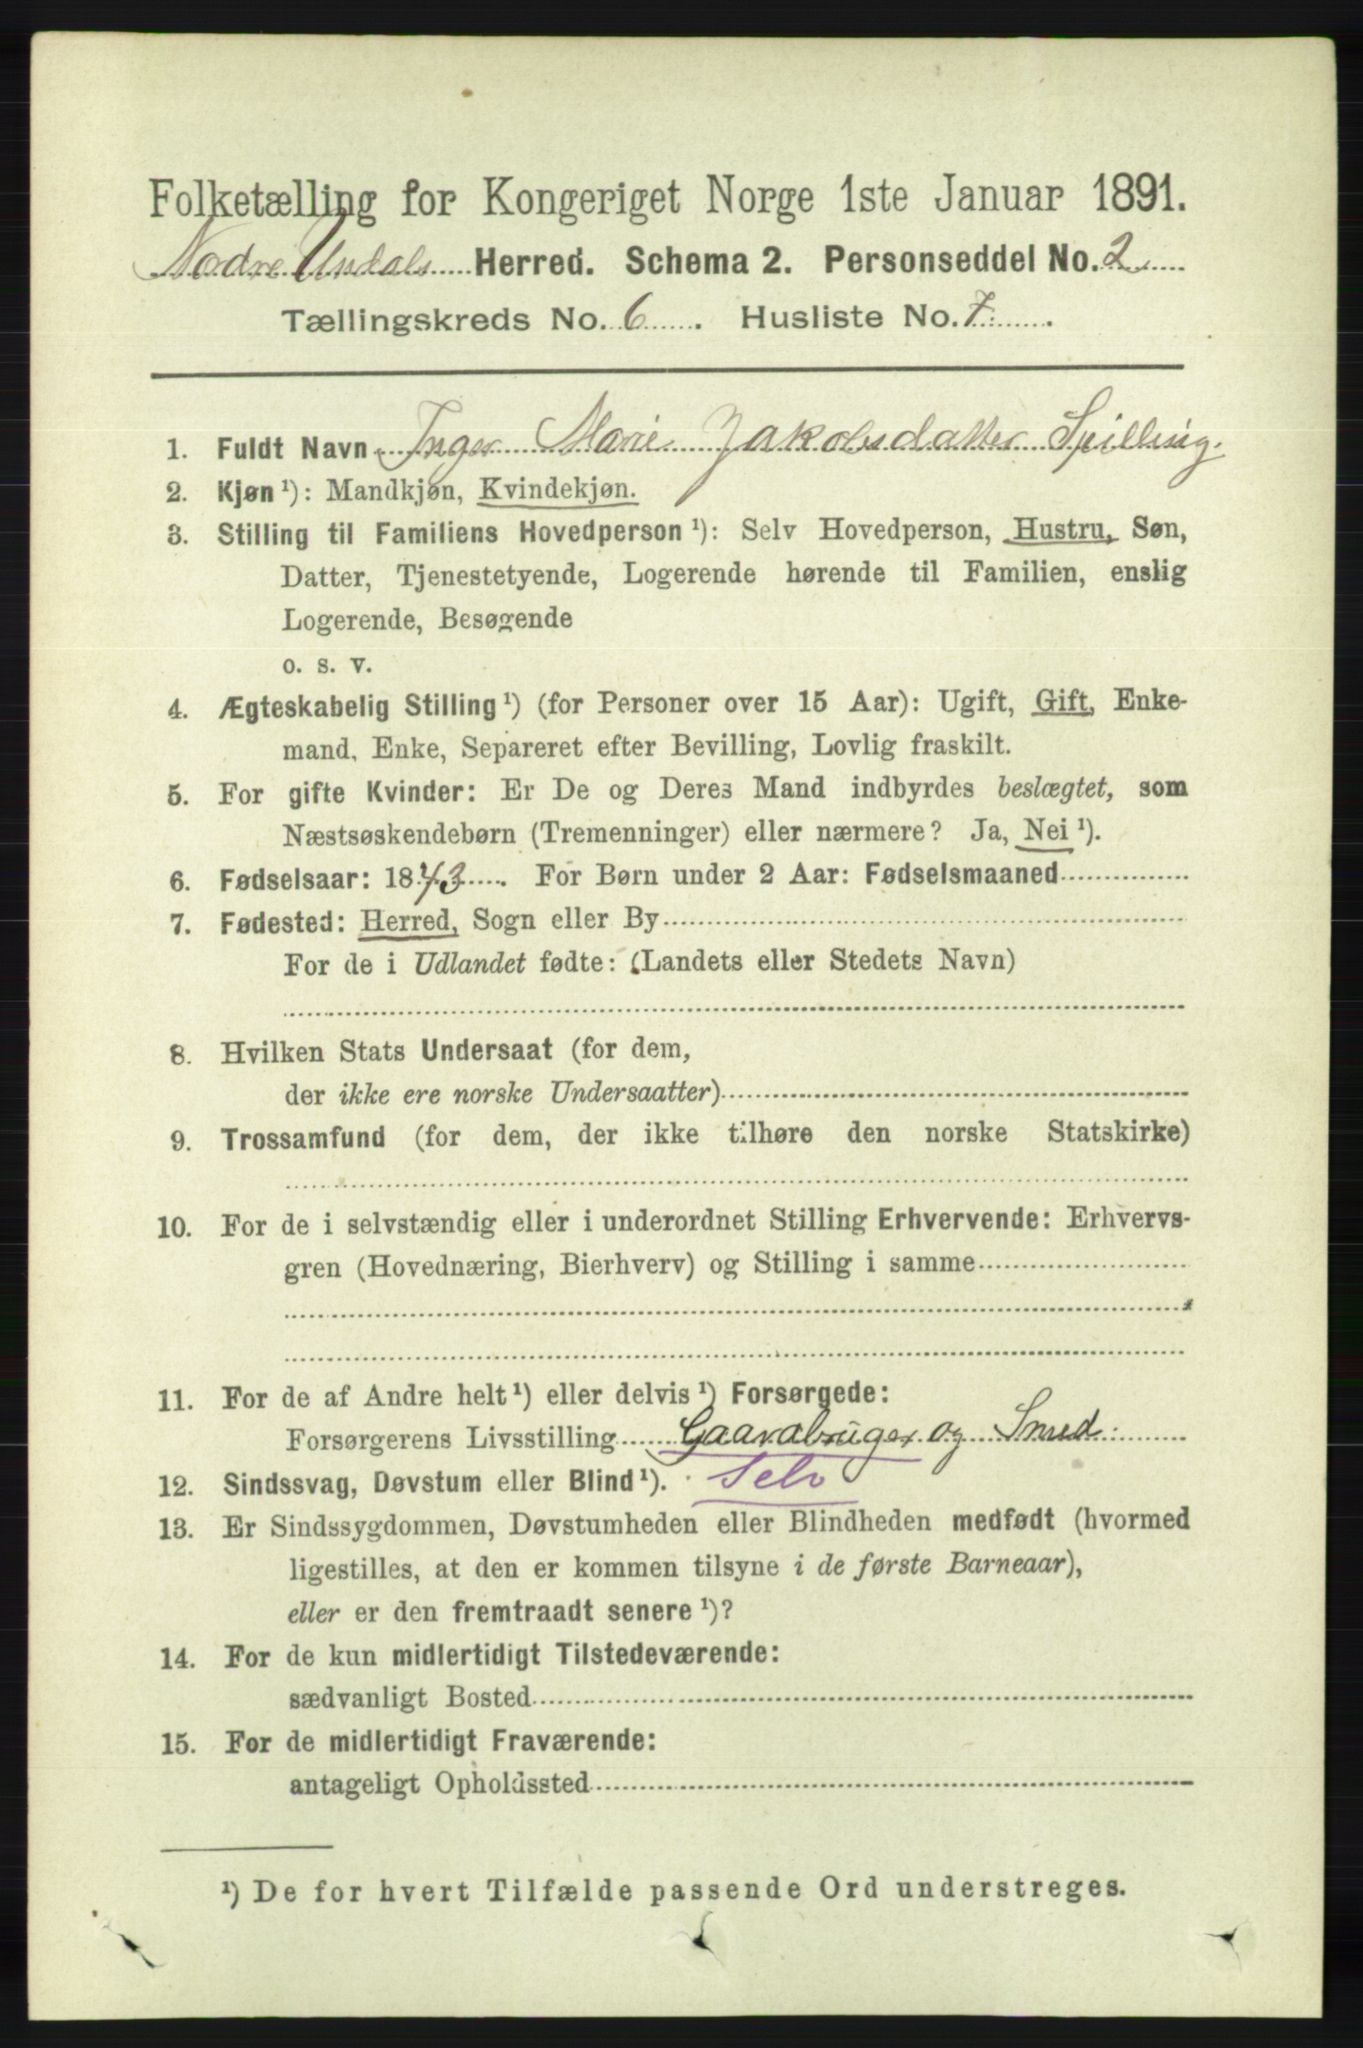 Folketælling for Kongeriget Norge 1ste Januar 1891.
Nodre Undals Herred. Schema 2. Personseddel No. 2
Tællingskreds No. 6. Husliste No. 7.
1. Fuldt Navn Inger Marie Jakobsdatter Spilling.
2. Kjøn ¹): Mandkjøn, Kvindekjøn.
3. Stilling til Familiens Hovedperson ¹): Selv Hovedperson, Hustru, Søn,
Datter, Tjenestetyende, Logerende hørende til Familien, enslig
Logerende, Besøgende
o. s. v.
4. Ægteskabelig Stilling ¹) (for Personer over 15 Aar): Ugift, Gift, Enke-
mand, Enke, Separeret efter Bevilling, Lovlig fraskilt.
5. For gifte Kvinder: Er De og Deres Mand indbyrdes beslægtet, som
Næstsøskendebørn (Tremenninger) eller nærmere? Ja, Nei ¹).
6. Fødselsaar: 1843. For Børn under 2 Aar: Fødselsmaaned
7. Fødested: Herred, Sogn eller By
For de i Udlandet fødte: (Landets eller Stedets Navn)
8. Hvilken Stats Undersaat (for dem,
der ikke ere norske Undersaatter)
9. Trossamfund (for dem, der ikke tilhøre den norske Statskirke)
10. For de i selvstændig eller i underordnet Stilling Erhvervende: Erhvervs-
gren (Hovednæring, Bierhverv) og Stilling i samme
11. For de af Andre helt ¹) eller delvis ¹) Forsørgede:
Forsørgerens Livsstilling Gaardbruger og Smed.
12. Sindssvag, Døvstum eller Blind ¹). Selv
13. Er Sindssygdommen, Døvstumheden eller Blindheden medfødt (hvormed
ligestilles, at den er kommen tilsyne i de første Barneaar),
eller er den fremtraadt senere ¹)?
14. For de kun midlertidigt Tilstedeværende:
sædvanligt Bosted
15. For de midlertidigt Fraværende:
antageligt Opholdssted
¹) De for hvert Tilfælde passende Ord understreges.